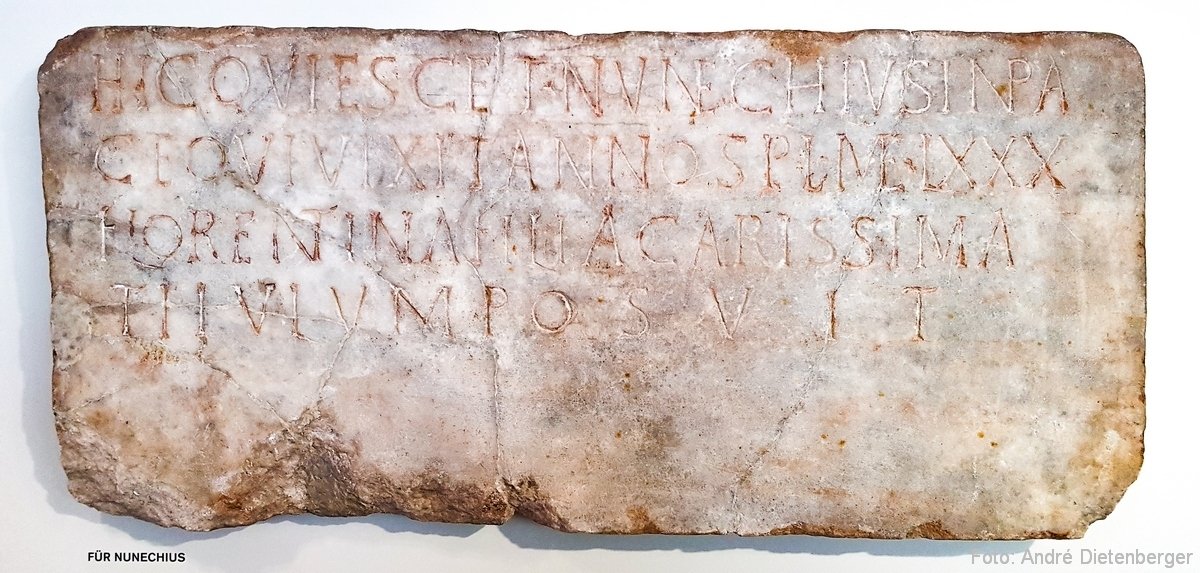 HIC QVIESCET NVNECHIVS IN PA
CE QVI VIXIT ANNOS PL·M·LXXX
FLORENTINA FILIA CARISSIMA
TITVLVM POSVIT
FÜR NUNECHIUS
Foto: André Dietenberger